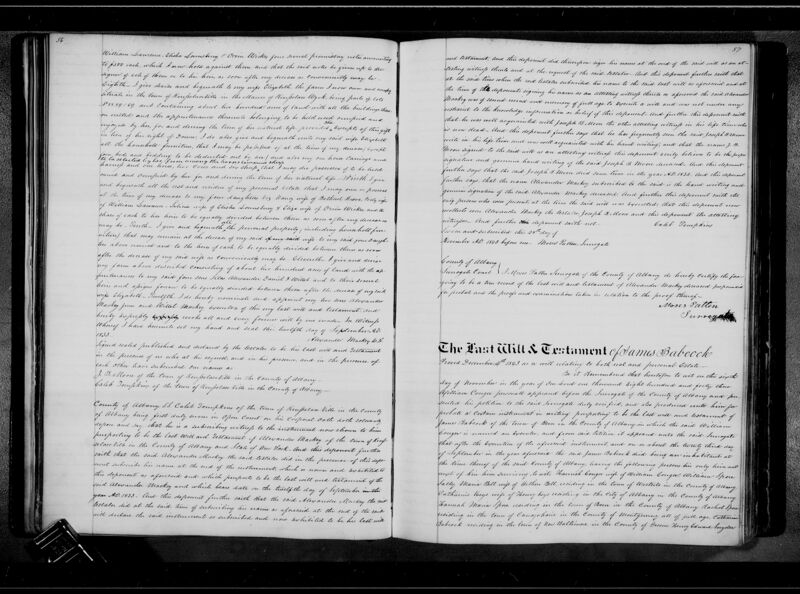 56
William Lawrence, Elisha Lounsbery & Orvin Wicks four several promissory notes amounting
to $500 each, which I now hold against them and that the said notes be given up to
each of them or to his heirs as soon after my decease as conveniently may be
Eighth. I give devise and bequeath to my wife Elizabeth the farm I now own and occupy
situate in the town of Renselaerville in the Manor of Renselaer Wyck, being parts of lots
and Containing about two hundred acres of land with all the buildings there
on erected and the appurtenances thereunto belonging to be held used occupied and
enjoyed by her, for and during the term of her natural life, provided she accepts of this gift
in lieu of her right of Dower. I do also give and bequeath unto my said wife Elizabeth
all the household furniture, that I may be possessed of at the time of my decease, except
one bed and bedding to be deducted out by me, and also my one horse Carriage and
harness and one horse, two cows and six sheep, that I may die possessed of to be held
used and occupied by her for and during the term of her natural life. Ninth. I give
and bequeath all the rest and residue of my personal estate that I may own or possess
at the time of my decease to my four daughters viz. Nancy wife of Bethuel
of William Lawrence wife of Elisha Lounsbery & Eliza wife of Orvin Wicks and to
share of each to her heirs to be equally divided between them as soon after my decease as
may be. Tenth. I give and bequeath the personal property, including household furni-
ture, that may remain at the decease of my said wife to my said four daugh-
ters above named and to the heirs of each to be equally divided between them as soon
after the decease of my said wife as conveniently may be. Eleventh. I give and devise
my farm above described consisting of about two hundred acres of land with the ap-
purtenances to my said four sons Silas Alexander Daniel & Wilsat and to their several
heirs and assigns forever to be equally divided between them after the decease of my said
wife Elizabeth. Twelfth. I do hereby nominate and appoint my two sons Alexander
Mackey jun and Wilsat Mackey executors of this my last will and testament, and
hereby revoke all and every former will by me made. In Witness
Whereof I have hereunto set my hand and seal this twelfth day of September A.D.
1833. Alexander Mackey L.S.
Signed sealed published and declared by the testator to be his last will and testament
in the presence of us who at his request, and in his presence, and in the presence of
each other have subscribed our names as
J. B. Moon of the town of Renselaerville in the County of Albany
Caleb Tompkins of the town of Renselaerville in the County of Albany
County of Albany SS Caleb Tompkins of the town of Renselaerville in the county
of Albany being first duly sworn in Open Court on his Corporal oath doth solemnly
depose and say that he is a subscribing witness to the instrument now shown to him
purporting to be the last Will and Testament of Alexander Mackey of the town of Rens
elaerville in the County of Albany and State of New York. And this deponent further
saith that the said Alexander Mackey the said testator did in the presence of this depo-
nent subscribe his name at the end of the instrument which is now and exhibited to
this deponent as aforesaid and which purports to be the last will and testament of the
said Alexander Mackey and which bears date on the twelfth day of September in the
year A.D. 1833. And this deponent further saith that the said Alexander Mackey the said
testator did at the said time of subscribing his name as aforesaid at the end of the said will
declare the said instrument so subscribed and now exhibited to be his last will
57
and testament, And this deponent did thereupon sign his name at the end of the said will as an at-
testing witness thereto and at the request of the said testator. And this deponent further saith that
at the said time when the said testator subscribed his name to the said last will as aforesaid and at
the time of this deponents signing his name as an attesting witness thereto as aforesaid the said Alexander
Mackey was of sound mind and memory of full age to execute a will and was not under any
restraint to the knowledge information or belief of this deponent. And further this deponent saith
that he was well acquainted with Joseph B. Moon the other attesting witness in his life time who
is now dead. And this deponent further says that he has frequently seen the said Joseph B Moon
write in his life time and was well acquainted with his hand writing; and that the name J. B.
Moon signed to the said will as an attesting witness this deponent verily believes to be the proper
signature and genuine hand writing of the said Joseph B. Moon deceased. And this deponent
further says that the said Joseph B. Moon died some time in the year A.D. 1838. And the deponent
further says, that the name Alexander Mackey subscribed to the said is the hand writing and
genuine signature of the said Alexander Mackey deceased. And further this deponent saith the
only persons who were present at the time the said will was executed that this deponent now
recollects were Alexander Mackey the testator Joseph B. Moon and this deponent the attesting
witnesses. And further this deponent saith not. Caleb Tompkins
Sworn and subscribed this day of
December A.D. 1843 before me Moses Patten Surrogate
County of Albany
Surrogate Court } I Moses Patten Surrogate of the County of Albany do hereby certify the fore
going to be a true record of the last will and testament of Alexander Mackey deceased propounded
for probate and the proofs and examinations taken in relation to the proof thereof.
Moses Patten
Surrogate
The Last Will & Testament of James Babcock
Proved December 1843 as a will relating to both real and personal Estate.
Be it Remembered that heretofore to wit on the eighth
day of November in the year of Our Lord one thousand Eight hundred and forty three
William Cooper personally appeared before the Surrogate of the County of Albany and pre-
sented his petition to the said Surrogate duly verified, and also produced unto him for
probate a certain instrument in writing purporting to be the last will and testament of
James Babcock of the town of Bern in the County of Albany in which the said William
Cooper is named as Executor and from said Petition it appeared unto the said Surrogate
that after the Execution of the aforesaid instrument and on or about the twenty third day
of September in the year aforesaid the said James Babcock died being an inhabitant at
the time thereof of the said County of Albany, leaving the following persons his only heirs and
next of kin him surviving, to wit Hannah Cooper wife of William Cooper
Sally Maria Ball wife of Ball residing in the town of Westerlo in the County of Albany
Catharine Keys wife of Henry Keys residing in the City of Albany in the County of Albany
Hannah Maria residing in the town of Bern in the County of Albany Rachel
residing in the town of Canajoharie in the County of Montgomery all of full age, Catharine
Babcock residing in the town of New Baltimore in the County of Greene Henry Edward